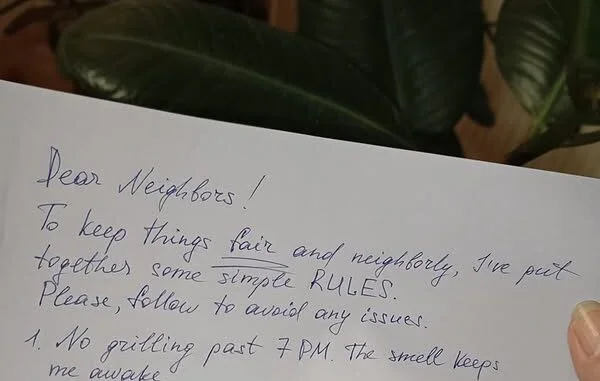 Dear Neighbors!
To keep things fair and neighborly, I've put
together some simple RULES.
Please, follow to avoid any issues.
1. No grilling past 7 PM. The smell keeps
me awake